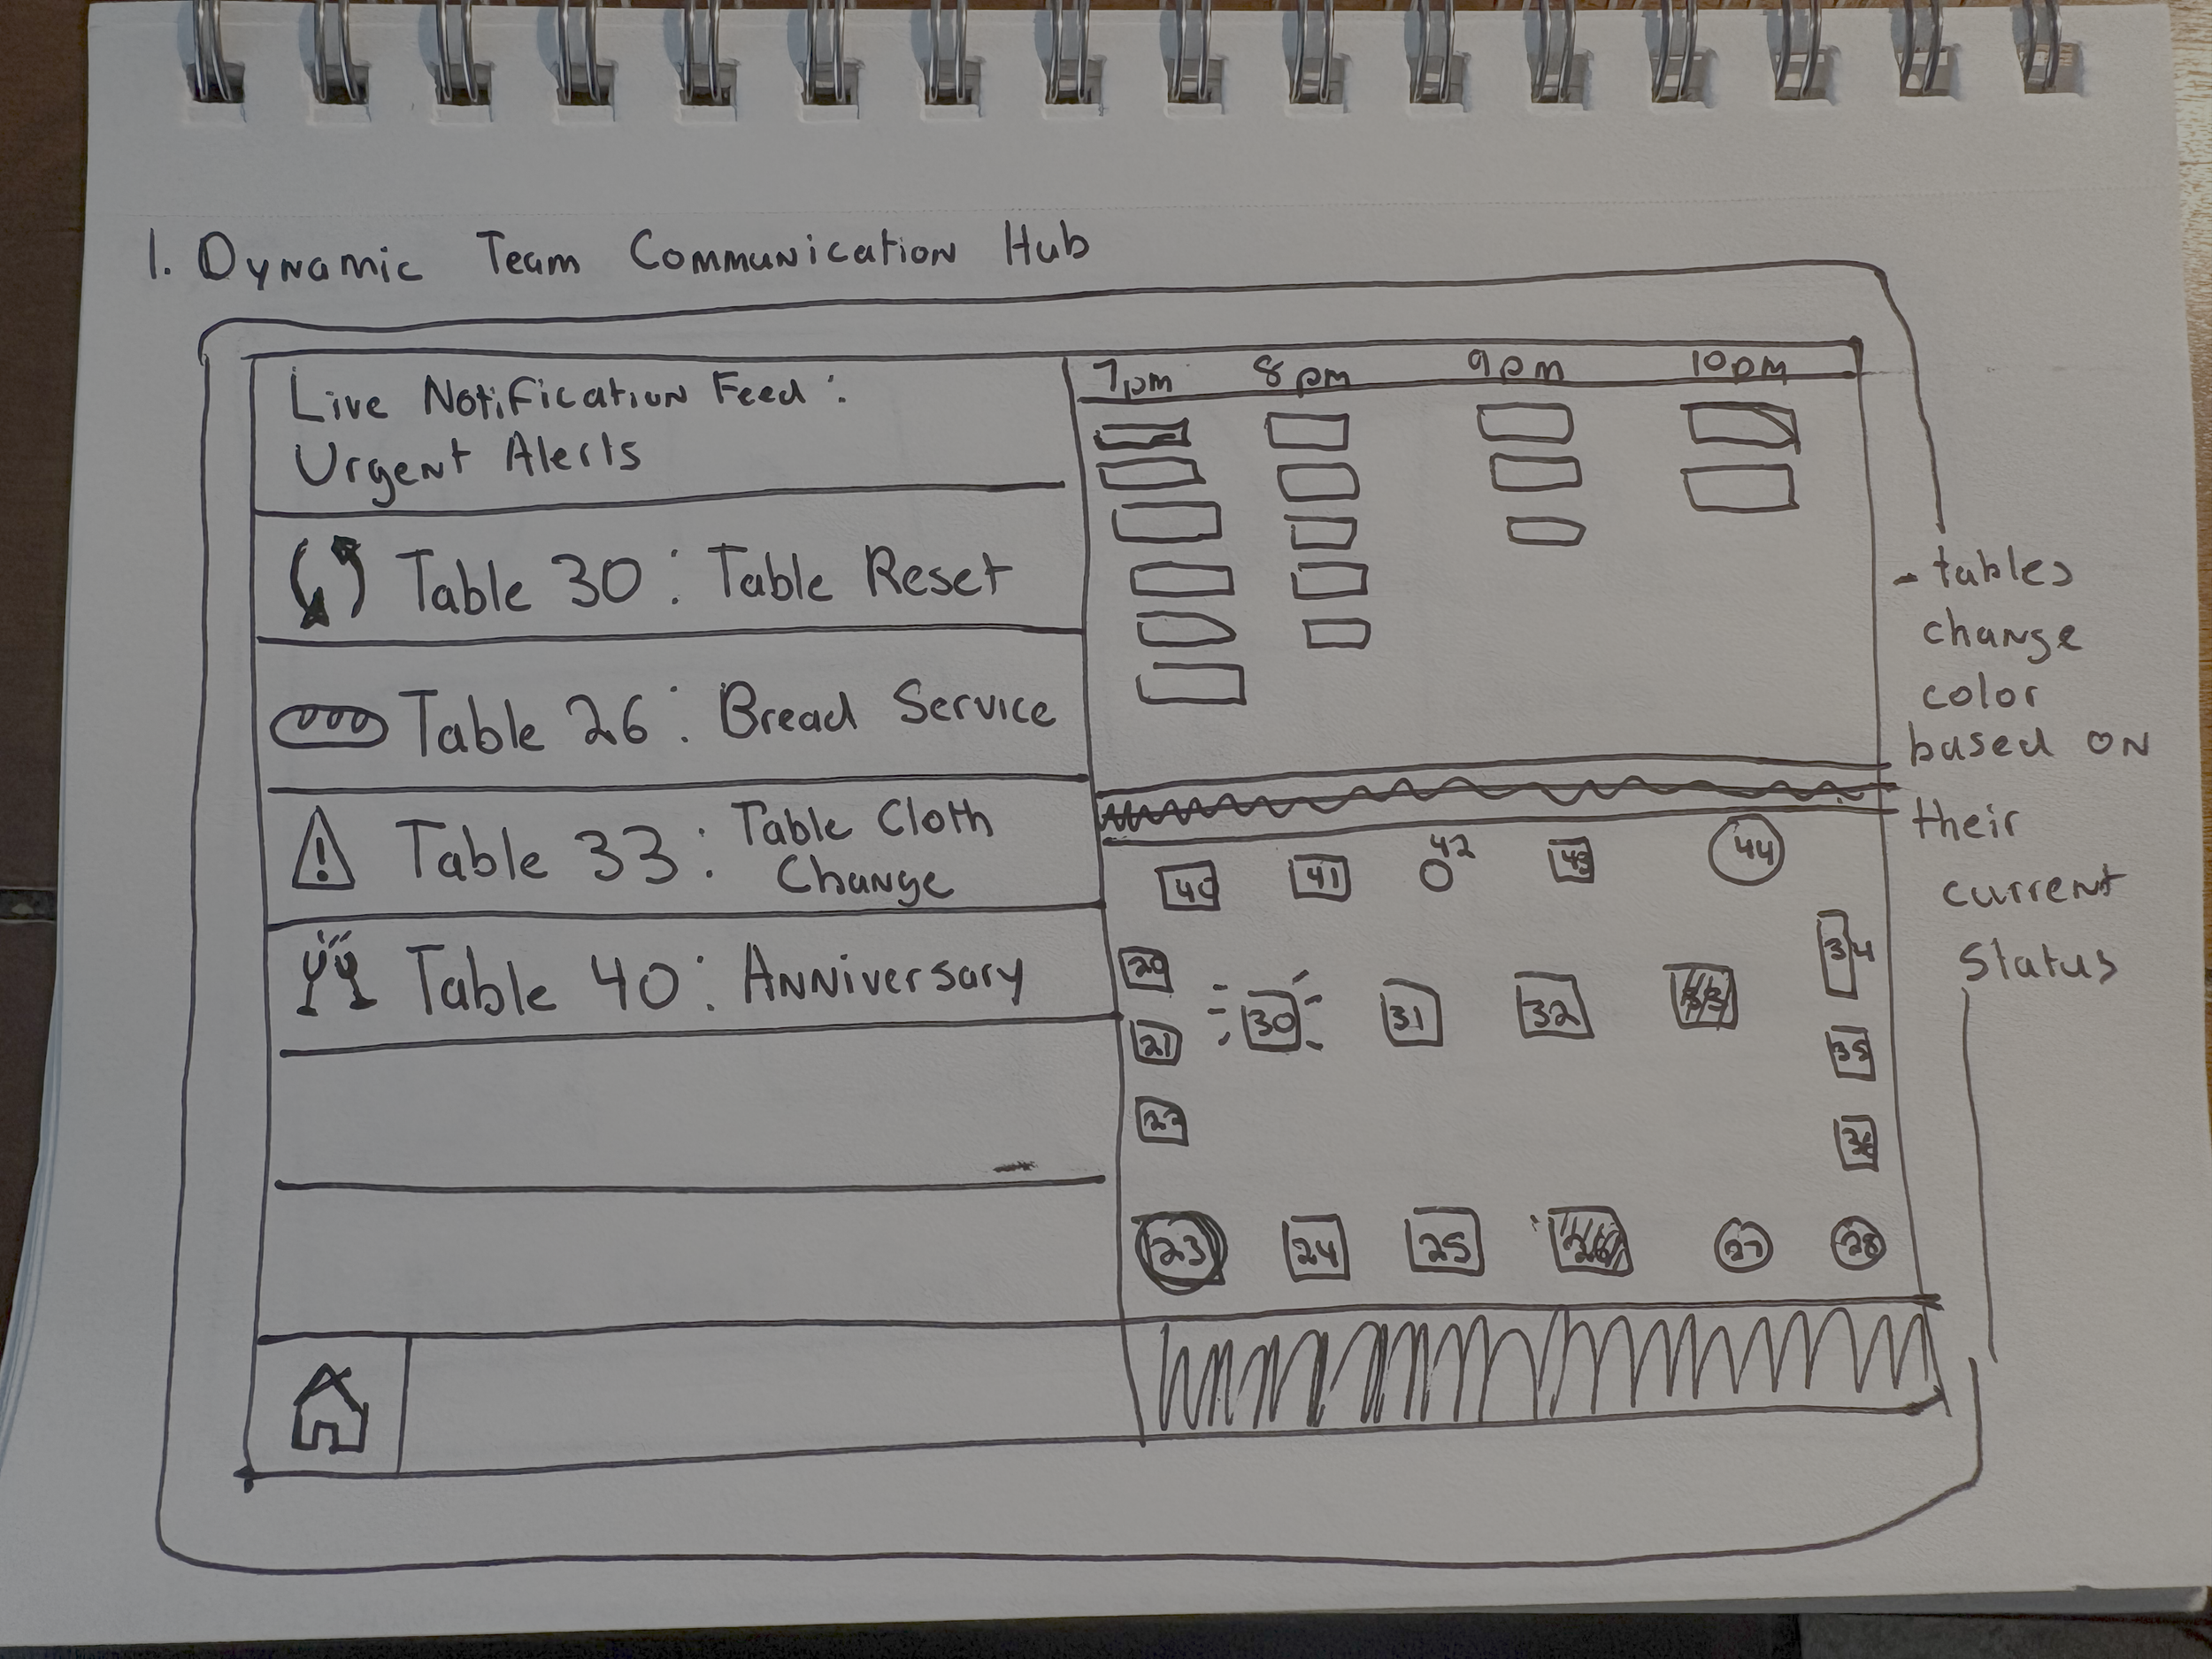 1. Dynamic Team Communication Hub
Live Notification Feed:
Urgent Alerts
Table 30: Table Reset
Table 26: Bread Service
Table 33: Table Cloth
Change
Table 40: Anniversary
7pm 8pm 9pm 10pm
40 41 42 43 44
20 30 31 32 33 34
21 35
22 36
23 24 25 26 27 28
- tables
change
color
based on
their
current
status